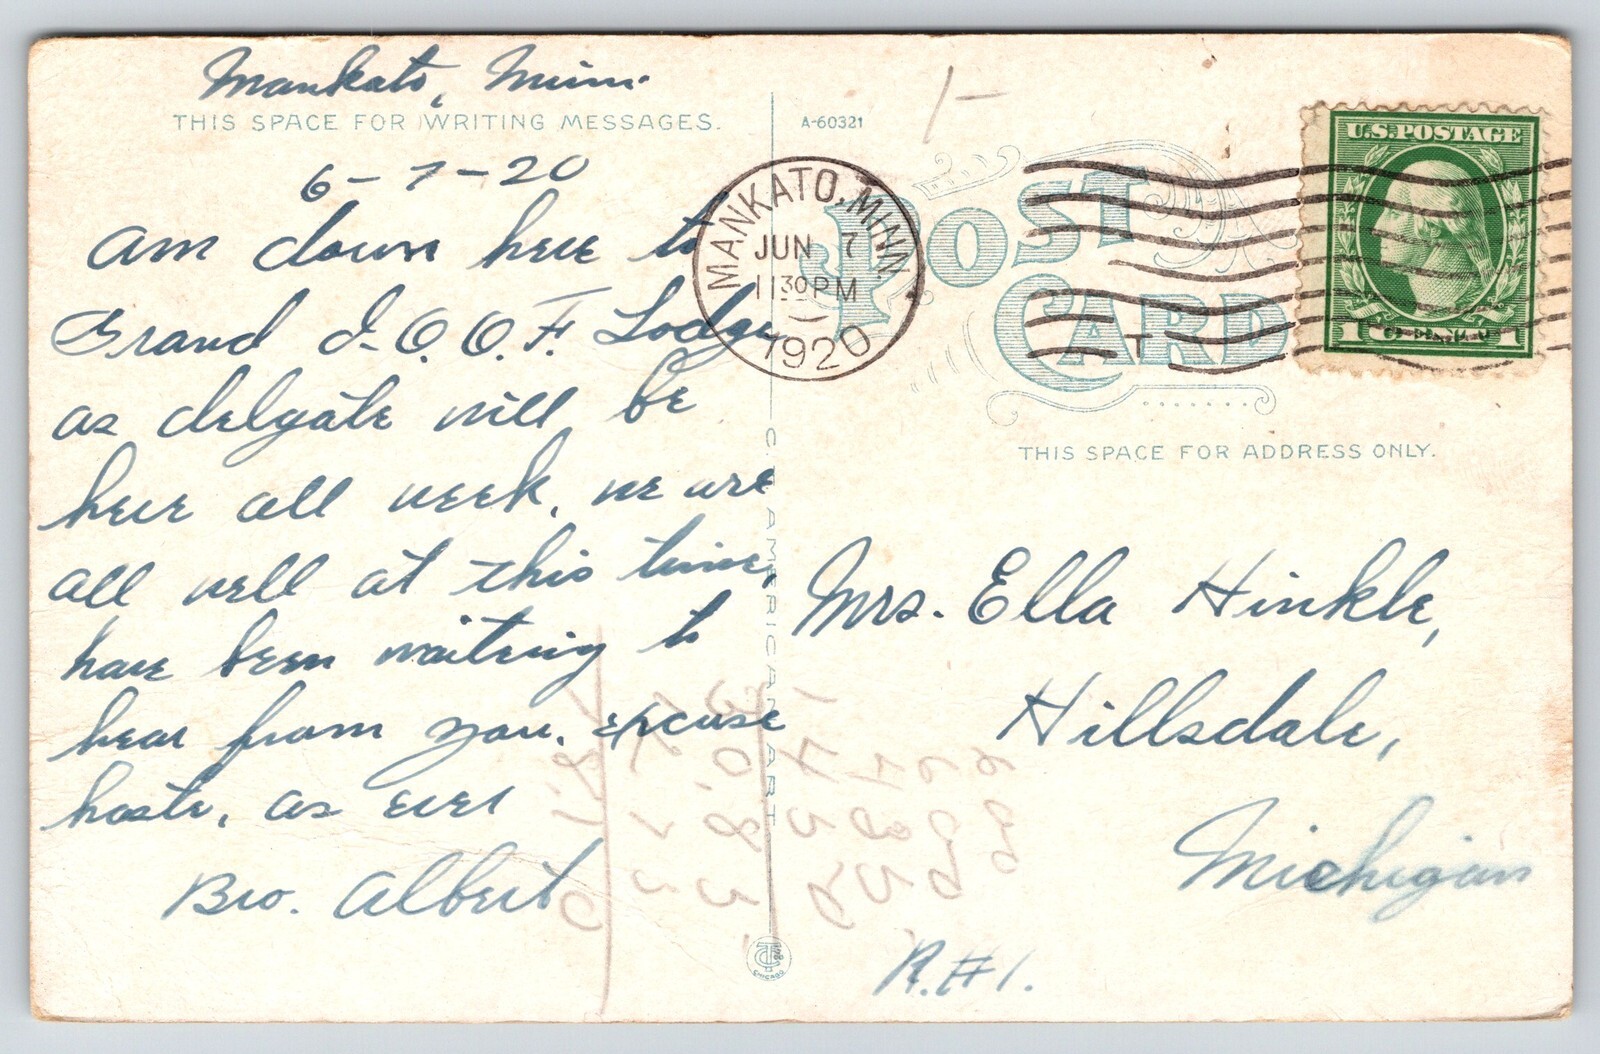 Mankato, Minn.
THIS SPACE FOR WRITING MESSAGES.
6-7-20
am down here to
Grand I.O.O.F. Lodge
as delgate will be
here all week, we are
all well at this time,
have been waiteing to
hear from you. excuse
haste, as ever
Bro. Albert
A-60321
C.T. AMERICAN ART
CHICAGO
MANKATO, MINN.
JUN 7
11 30 PM
1920
POST
CARD
U.S. POSTAGE
1 CENT 1
THIS SPACE FOR ADDRESS ONLY.
Mrs. Ella Hinkle,
Hillsdale,
Michigan
R.#1.